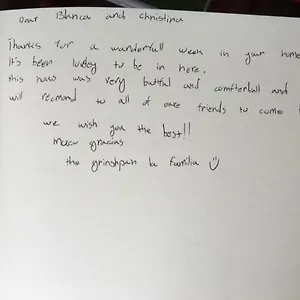 Dear Blanca and Christina
Thanks for a wanderfull week in your home
It's been lovley to be in here.
this hous was very butifull and comfterball and
will recmond to all of owr friends to come
we wish you the best!!
Mucu gracias
the grinshpan la Familia